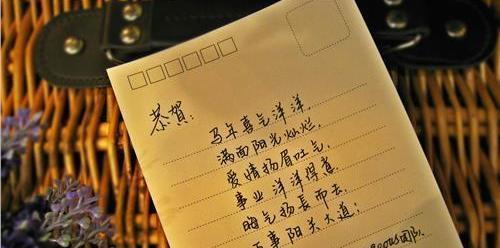 恭賀:
马年喜气洋洋,
满面阳光灿烂,
爱情扬眉吐气,
事业洋洋得意
晦气扬長而去,
百事阳关大道;
团队